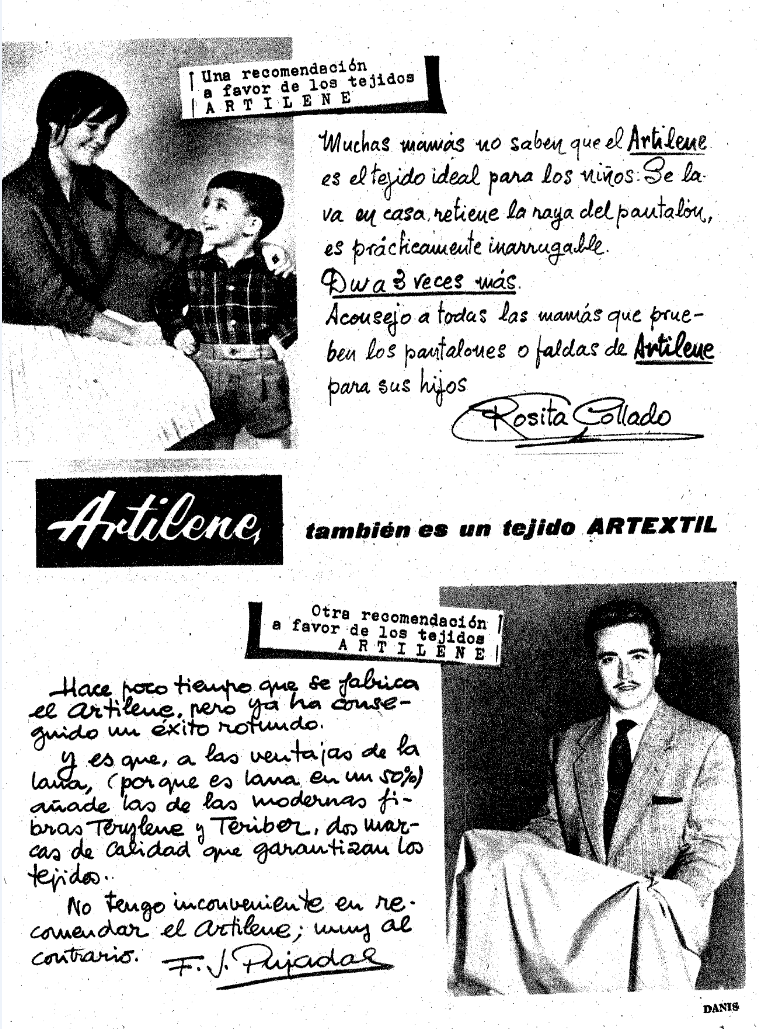 Una recomendación
a favor de los tejidos
ARTILENE
Muchas mamás no saben que el Artilene
es el tejido ideal para los niños: Se la-
va en casa, retiene la raya del pantalón,
es prácticamente inarrugable.
Dura 3 veces más.
Aconsejo a todas las mamás que prue-
ben los pantalones o faldas de Artilene
para sus hijos
Rosita Collado
Artilene,
también es un tejido ARTEXTIL
Otra recomendación
a favor de los tejidos
ARTILENE
Hace poco tiempo que se fabrica
el Artilene, pero ya ha conse-
guido un éxito rotundo.
Y es que, a las ventajas de la
lana, (porque es lana en un 50%)
añade las de las modernas fi-
bras Terylene y Teriber, dos mar-
cas de calidad que garantizan los
tejidos..
No tengo inconveniente en re-
comendar el Artilene; muy al
contrario.
F. J. Pujadas
DANIS